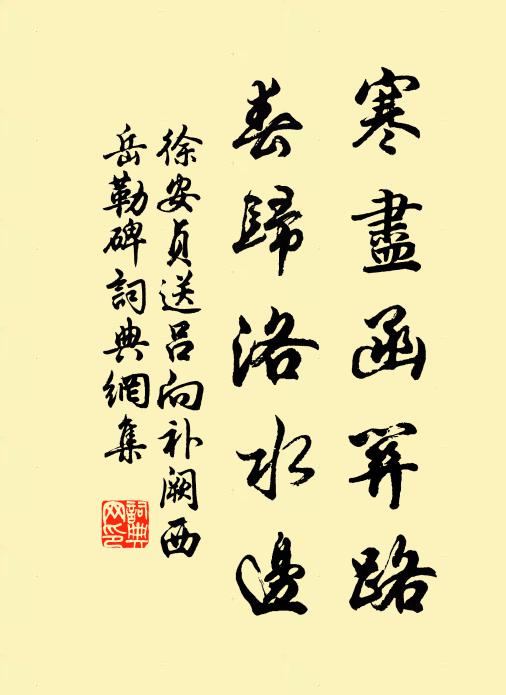 寒盡函關路
春歸洛水邊
徐安貞送呂向补闕西
岳勒碑詞典網集
詞典网印